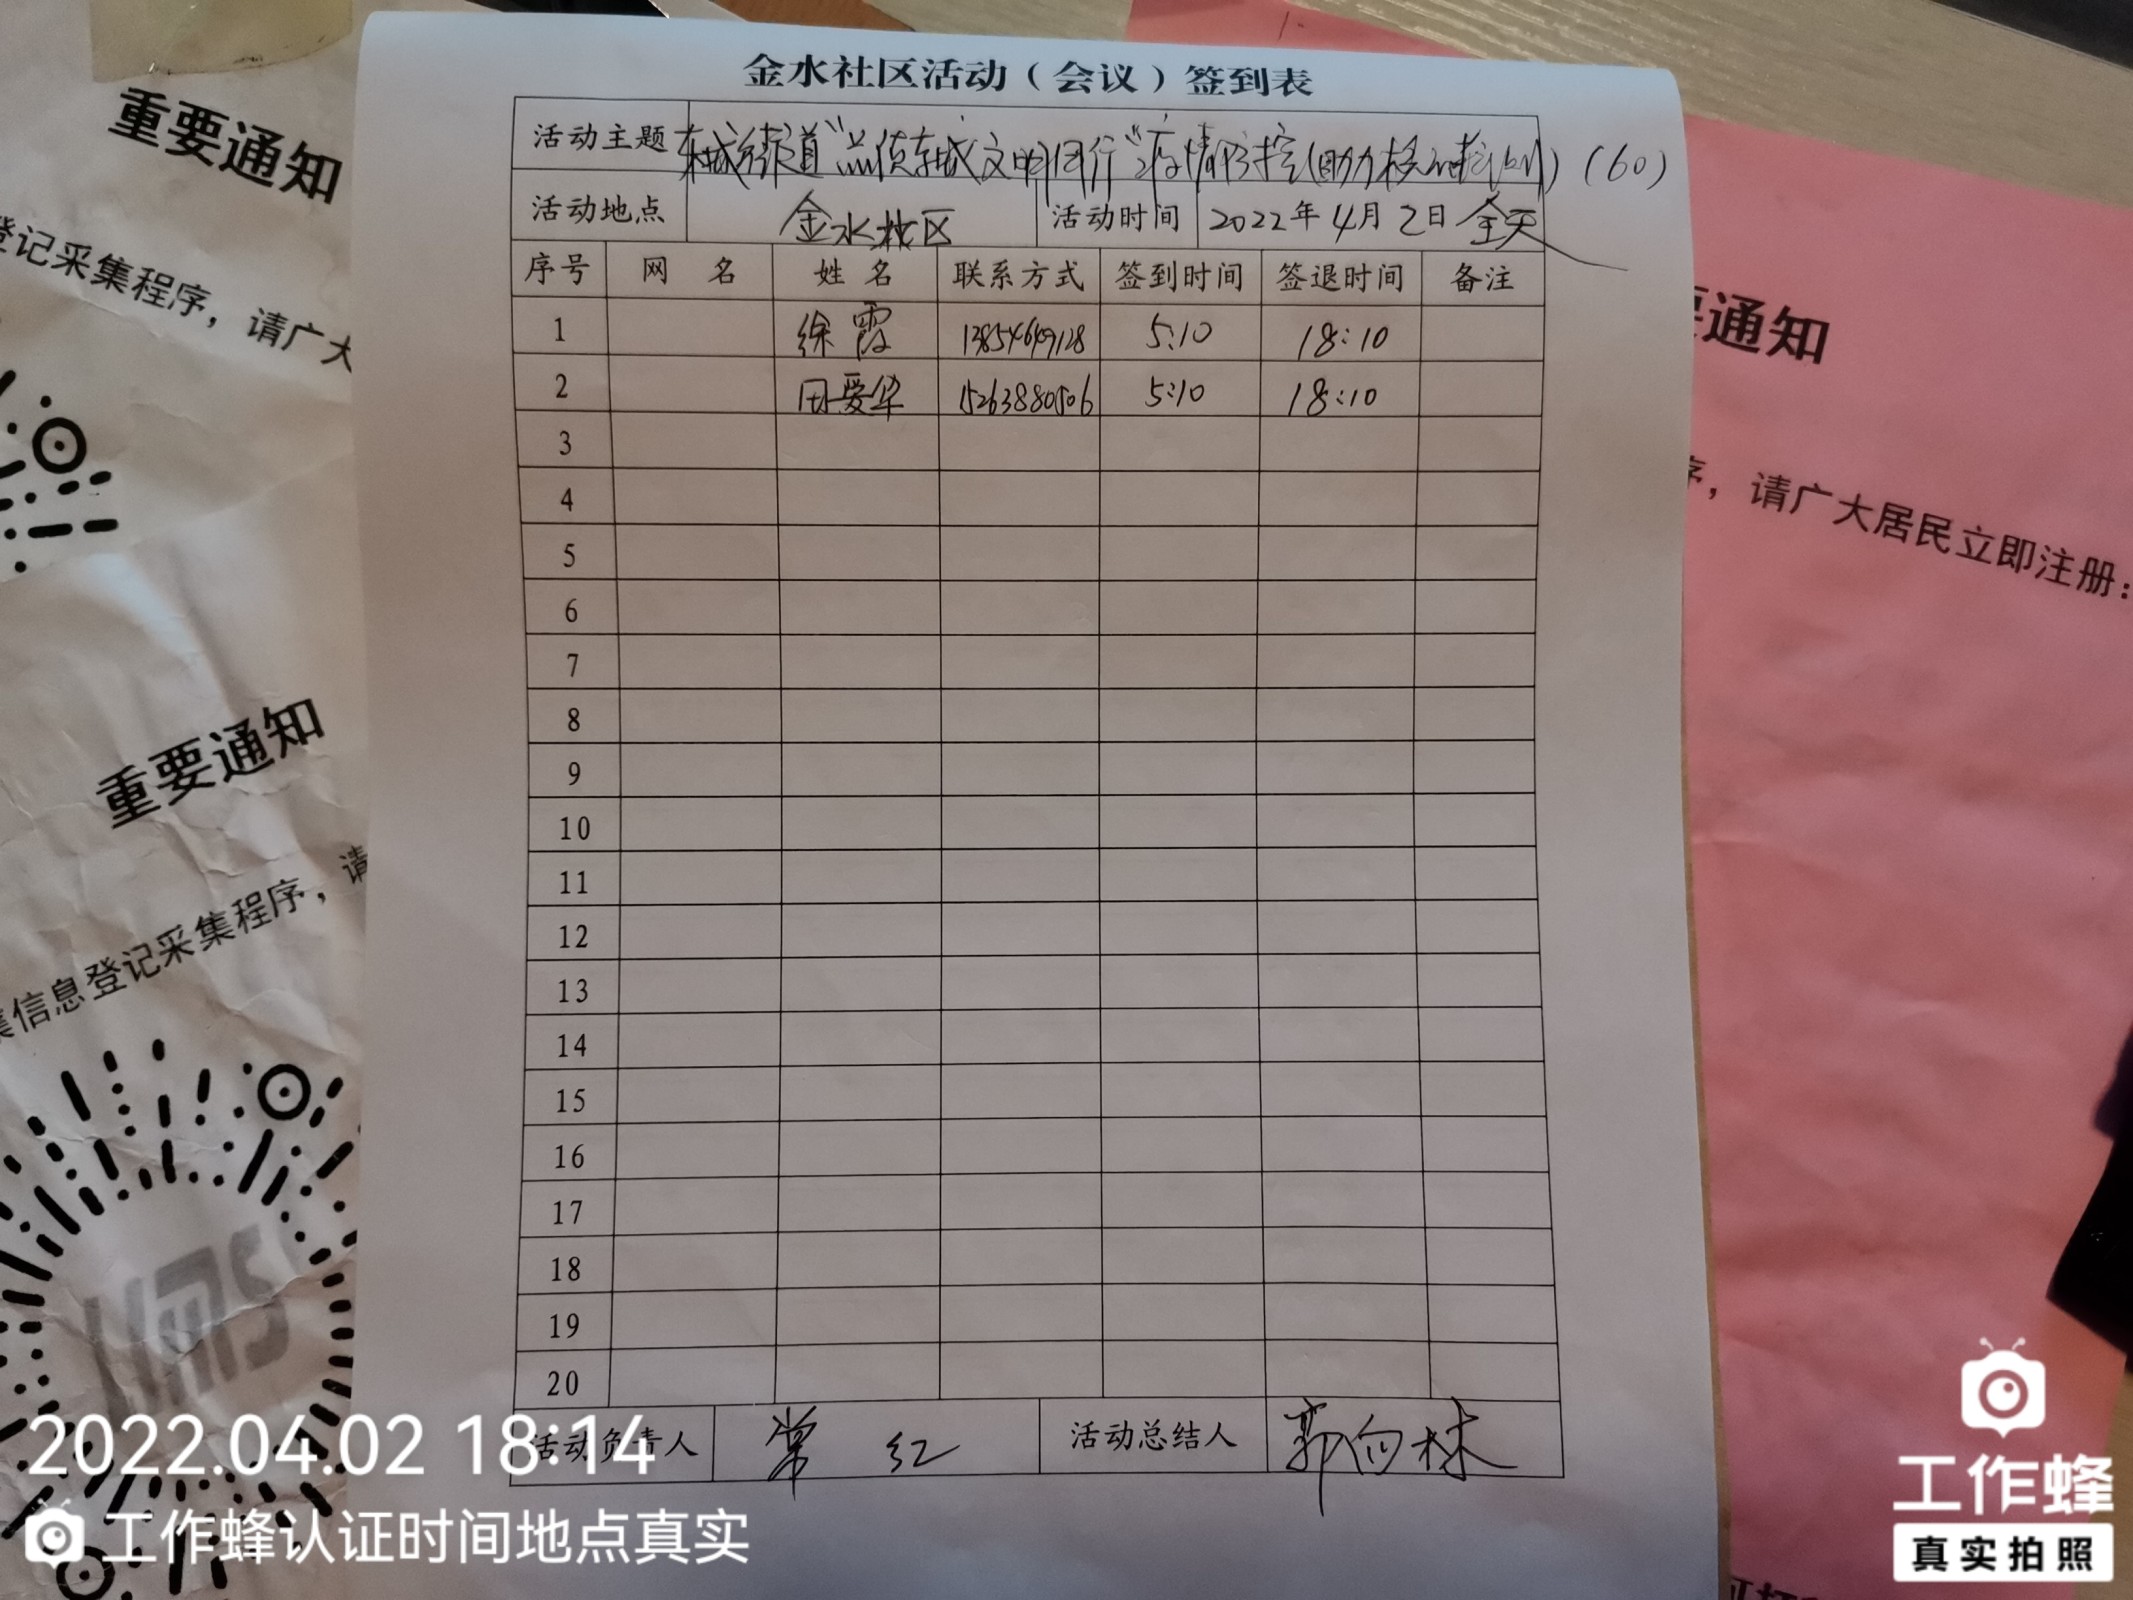 金水社区活动（会议）签到表
活动主题 东城街道“点废东城文明同行”疫情防控(助力核酸检测)（60）
活动地点 金水社区 活动时间 2022年4月2日 全天
序号 网 名 姓 名 联系方式 签到时间 签退时间 备注
1 徐霞 5:10 18:10
2 田爱华 15263880506 5:10 18:10
3
4
5
6
7
8
9
10
11
12
13
14
15
16
17
18
19
20
活动负责人 常红 活动总结人 郭向林
重要通知
登记采集程序，请广大
重要通知
集信息登记采集程序，请
要通知
序，请广大居民立即注册：
2022.04.02 18:14
工作蜂认证时间地点真实
工作蜂
真实拍照